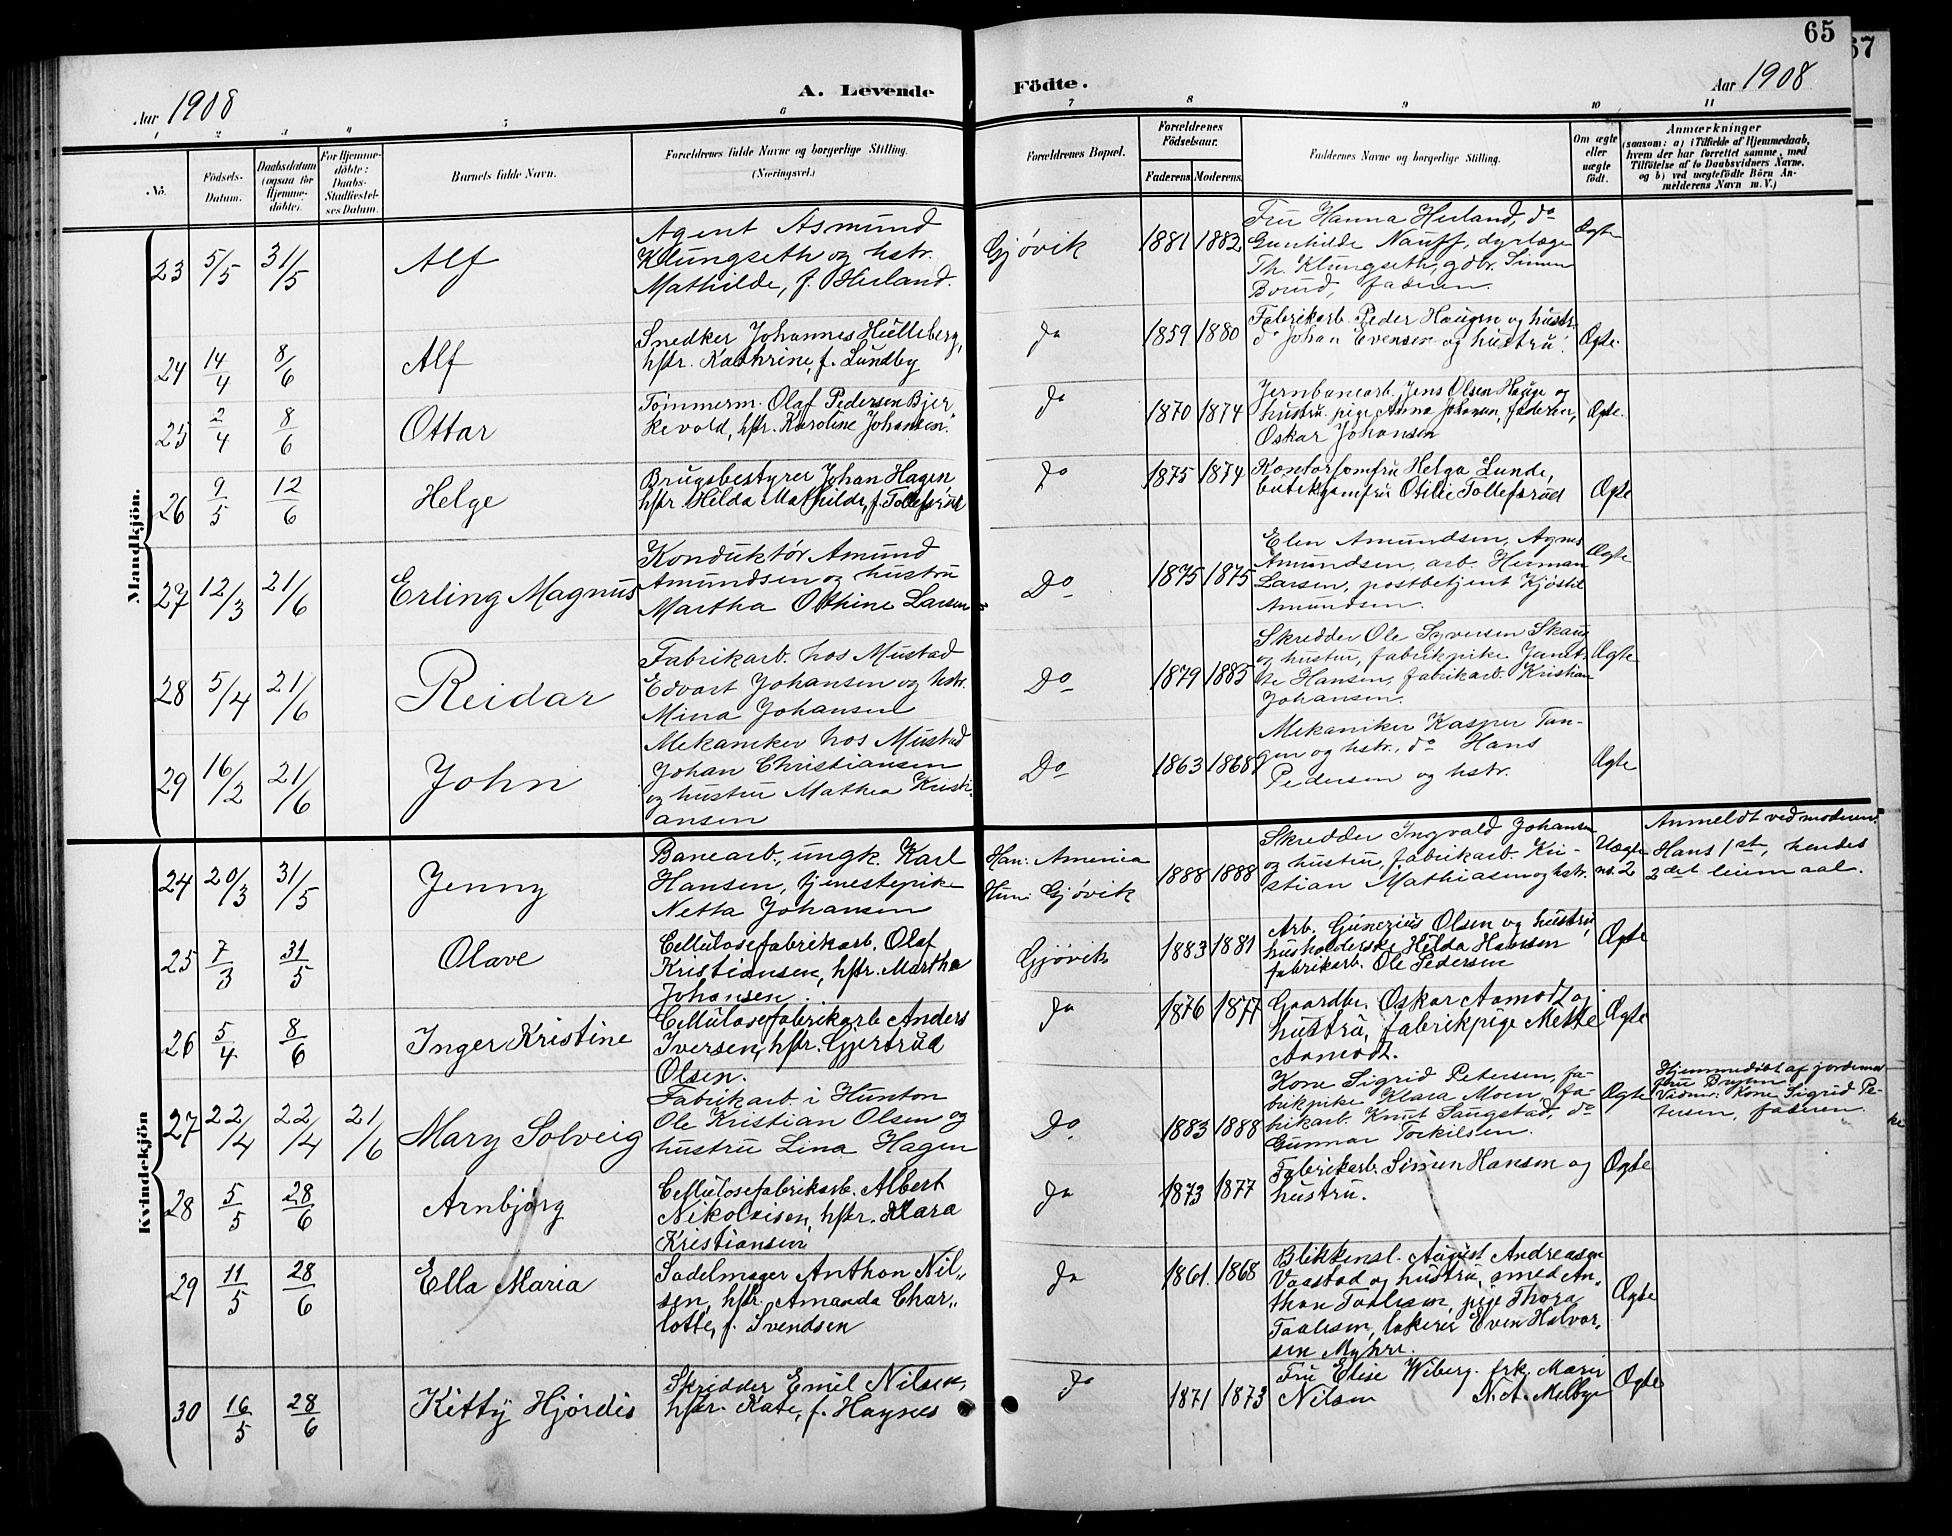 65
67
Aar 1908
A. Levende Födte.
Aar 1908
1 2 3 4 5 6 7 8 9 10 11
No.
Födsels-Datum.
Daabsdatum (ogsaa for Hjemme-döbte).
For Hjemme-döbte: Daabs-Stadfæstel-ses Datum.
Barnets fulde Navn.
Forældrenes fulde Navne og borgerlige Stilling. (Næringsvei.)
Forældrenes Bopæl.
Forældrenes Födselsaar.
Faderens. Moderens.
Faddernes Navne og borgerlige Stilling.
Om ægte eller uægte födt.
Anmærkninger
(saasom: a) i Tilfælde af Hjemmedaab,
hvem der har forrettet samme, med
Tilföielse af to Daabsvidners Navne.
og b) ved uægtefödte Börn An-
melderens Navn m. V.)
Mandkjön.
23 5/5 31/5 Alf
Agent Asmund
Klungseth og hstr.
Mathilde, f. Heiland.
Gjøvik 1881 1882
Fru Hanna Heiland, do
Gunhilde Nauff, dyrlæge
Th. Klungseth, gdbr. Simen
Bourd, faderen.
Ægte
24 14/4 8/6 Alf
Snedker Johannes Hulleberg,
hstr. Kathrine, f. Lundby
do 1859 1880
Fabrikarb. Peder Haugen og hustr.
do Johan Evensen og hustru.
Ægte.
25 2/4 8/6 Ottar
Tømmerm. Olaf Pedersen Bjer-
kevold, hstr. Karoline Johansen.
do 1870 1874
Jernbanearb. Jens Olsen Hauge og
hustru, pige Anna Johansen, faderen,
Oskar Johansen
Ægte.
26 9/5 12/6 Helge
Brugsbestyrer Johan Hagen
hstr. Hilda Mathilde, f. Tollefsrud
do 1875 1874
Kontorfrøken Helga Lunde,
butikjomfru Otilie Tollefsrud
Ægte
27 12/3 21/6 Erling Magnus
Konduktør Amund
Amundsen og hustru
Martha Othine Larsen
Do 1875 1875
Elen Amundsen, Agnes
Amundsen, arb. Herman
Larsen, postbetjent Kjøstel
Amundsen.
Ægte
28 5/4 21/6 Reidar
Fabrikarb. hos Mustad
Edvart Johansen og hstr.
Mina Johansen
Do 1879 1883
Skredder Ole Syversen Skaug
og hustru, fabrikpike Janet-
te Hansen, fabrikarb. Kristian
Johansen.
Ægte
29 16/2 21/6 John
Mekaniker hos Mustad
Johan Christiansen
og hustru Mathea Kristi-
ansen
Do 1863 1868
Mekaniker Kasper Tan-
gen og hstr., do Hans
Pedersen og hstr.
Ægte
Kvindekjön
24 20/3 31/5 Jenny
Banearb., ungk. Karl
Hansen, tjenestepike
Netta Johansen
Han: America
Hun: Gjøvik
1888 1888
Skredder Ingvald Johansen
og hustru, fabrikarb. Kri-
stian Mathiasen og hstr.
Uægte
no. 2
Anmeldt ved moderen.
Hans 1st, hendes
2det leiermaal.
25 7/3 31/5 Olave
Cellulosefabrikarb. Olaf
Kristiansen, hstr. Martha
Johansen.
Gjøvik 1883 1881
Arb. Gunerius Olsen og hustru,
husholderske Hilda Hansen
fabrikarb. Ole Pedersen
Ægte
26 5/4 8/6 Inger Kristine
Cellulosefabrikarb. Anders
Iversen, hstr. Gjertrud
Olsen.
do 1876 1877
Gaardbr. Oskar Aamodt og
hustru, fabrikpige Mette
Aamodt.
Ægte
27 22/4 22/4 21/6 Mary Solveig
Fabrikarb. i Hunton
Ole Kristian Olsen og
hustru Lina Hagen
Do 1883 1888
Kone Sigrid Petersen, fa-
brikpike Klara Moen, fa-
brikarb. Knut Saugstad, do
Gunnar Torkilsen.
Ægte
Hjemmedøbt af jordemor
fru Bryen
Vidner: Kone Sigrid Pe-
tersen, faderen.
28 5/5 28/6 Arnbjørg
Cellulosefabrikarb. Albert
Nikolaisen, hstr. Klara
Kristiansen
do 1873 1877
Fabrikarb. Simen Hansen og
hustru.
Ægte
29 11/5 28/6 Ella Maria
Sadelmager Anthon Nil-
sen, hstr. Amanda Char-
lotte, f. Svendsen
do 1861. 1868
Blikkensl. August Andreasen
Vaastad og hustru, smed An-
thon Paulsen, pige Thora
Paulsen, lakerer Even Halvor-
sen Myhre.
Ægte
30 16/5 28/6 Kitty Hjørdis
Skredder Emil Nilsen,
hstr. Kate, f. Haynes
do 1871 1873
Fru Elise Wiberg. frk. Marie
Nilsen N. A. Melbye
Ægte